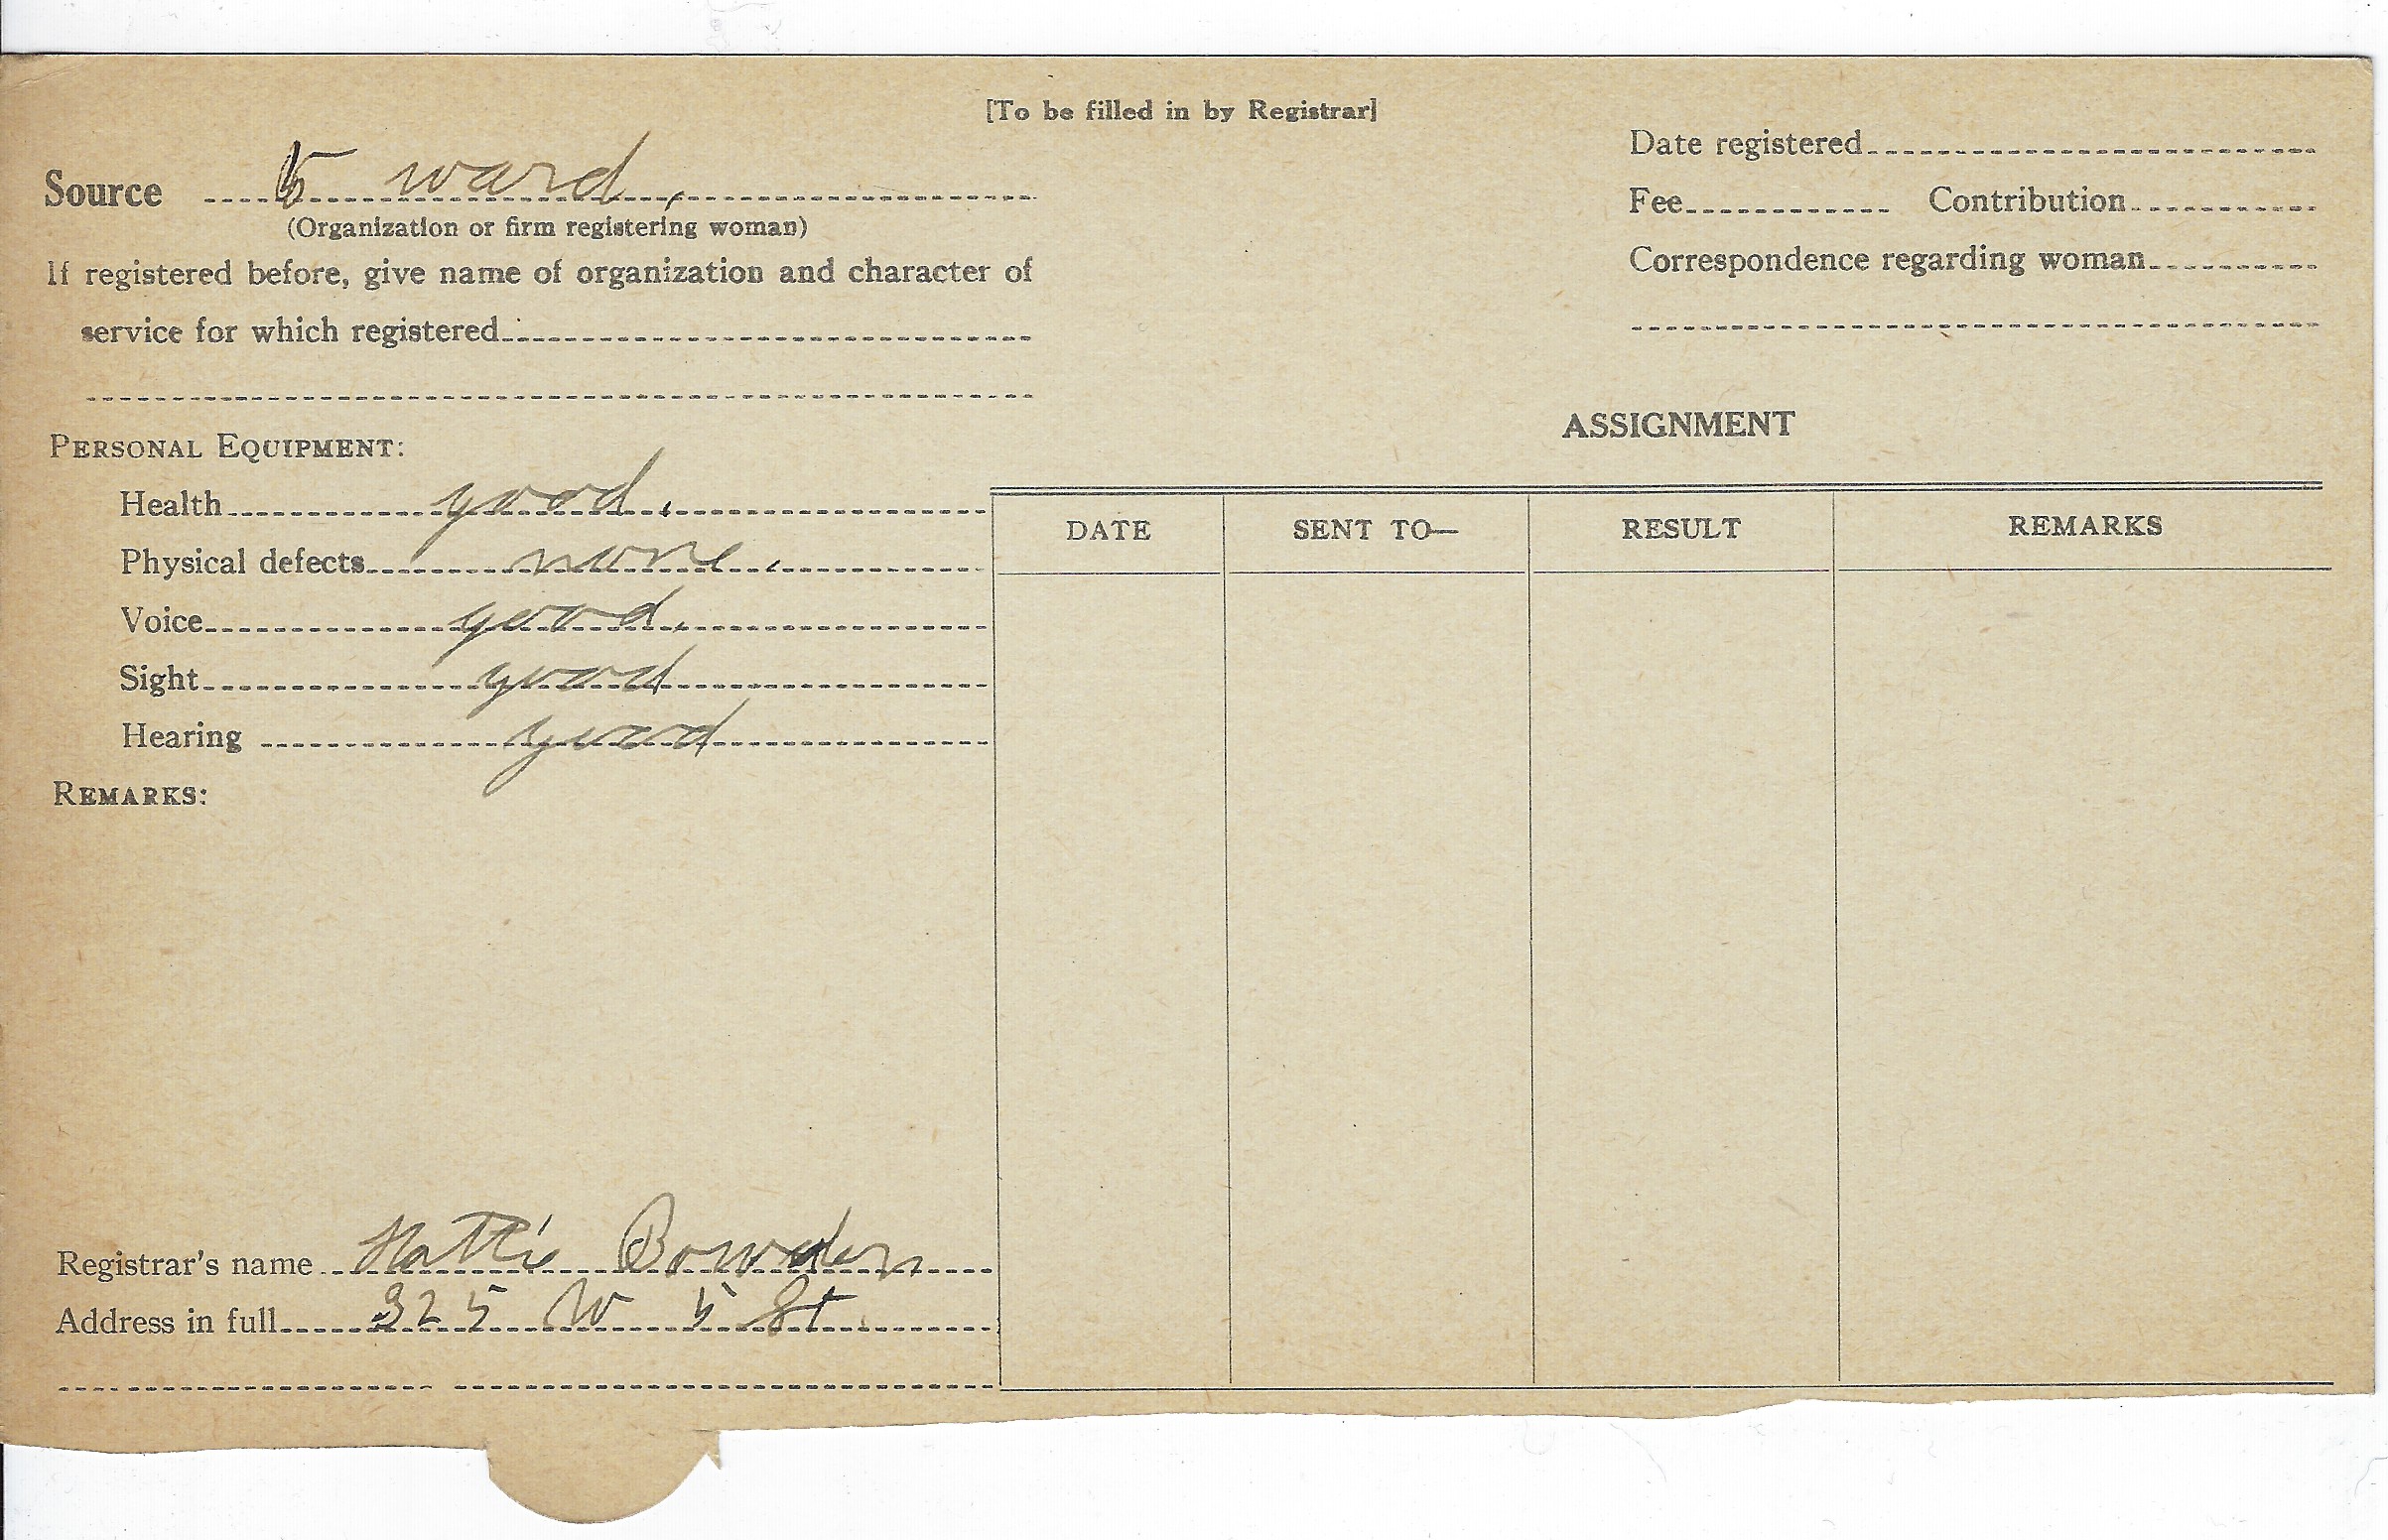 [To be filled in by Registrar]
Source 5 ward,
(Organization or firm registering woman)
If registered before, give name of organization and character of
service for which registered
Date registered
Fee Contribution
Correspondence regarding woman
PERSONAL EQUIPMENT:
Health good.
Physical defects none.
Voice good.
Sight good
Hearing good
REMARKS:
Registrar's name Hattie Bowden
Address in full 325 W 5 St.
ASSIGNMENT
DATE SENT TO— RESULT REMARKS